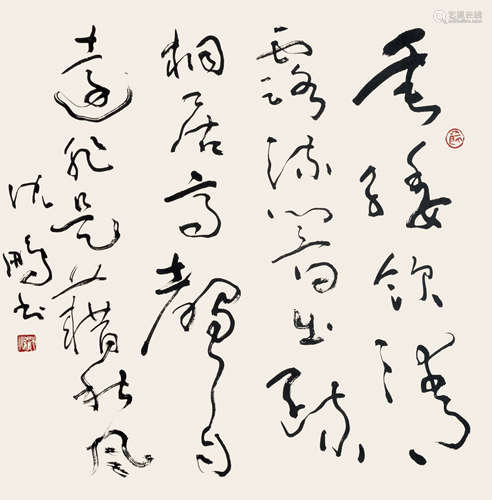 垂緌飲清
露流響出疏
桐居高聲自
遠非是藉秋風
沈鵬書